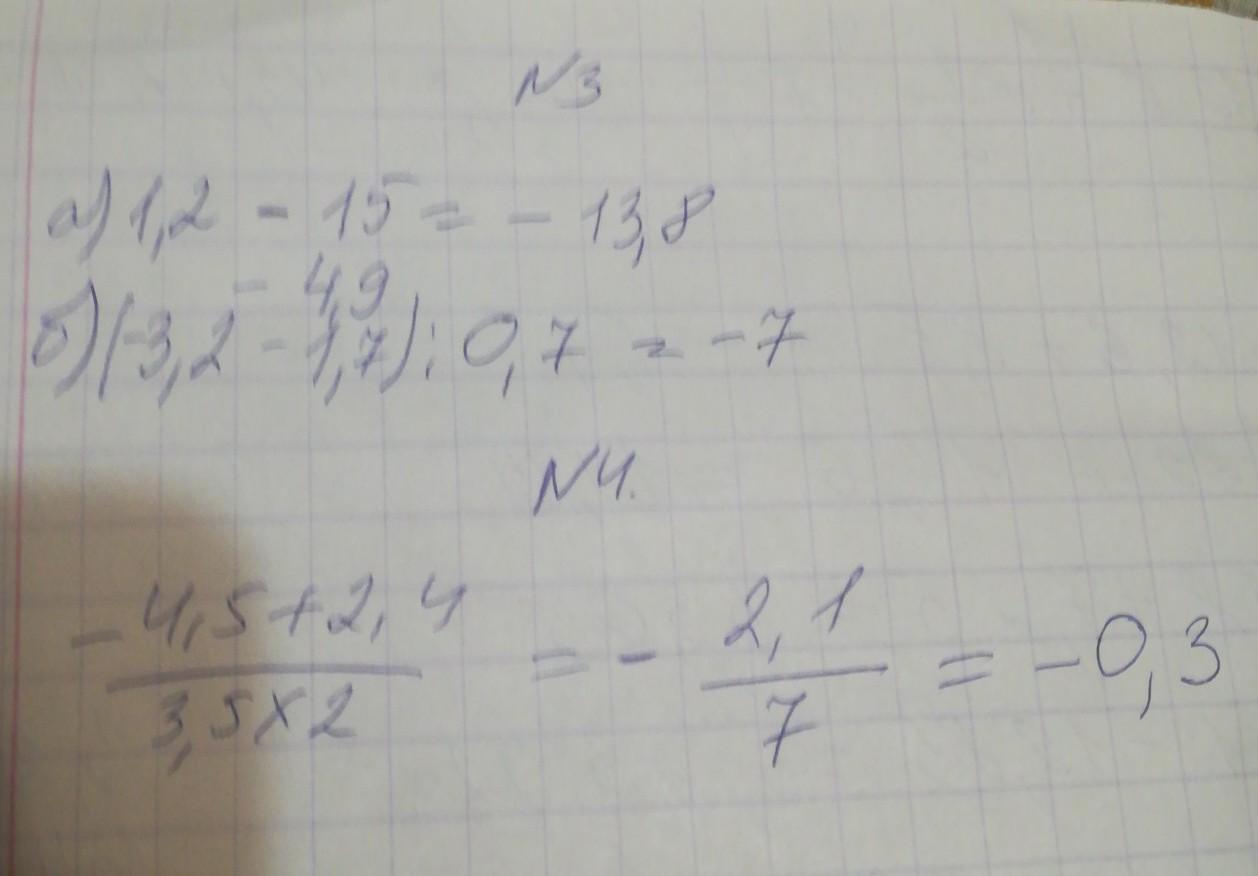 N3
а) 1,2 - 15 = - 13,8
- 4,9
б) (-3,2 - 1,7) : 0,7 = -7
N4.
- 4,5+2,4 = - 2,1 = -0,3
3,5×2 7